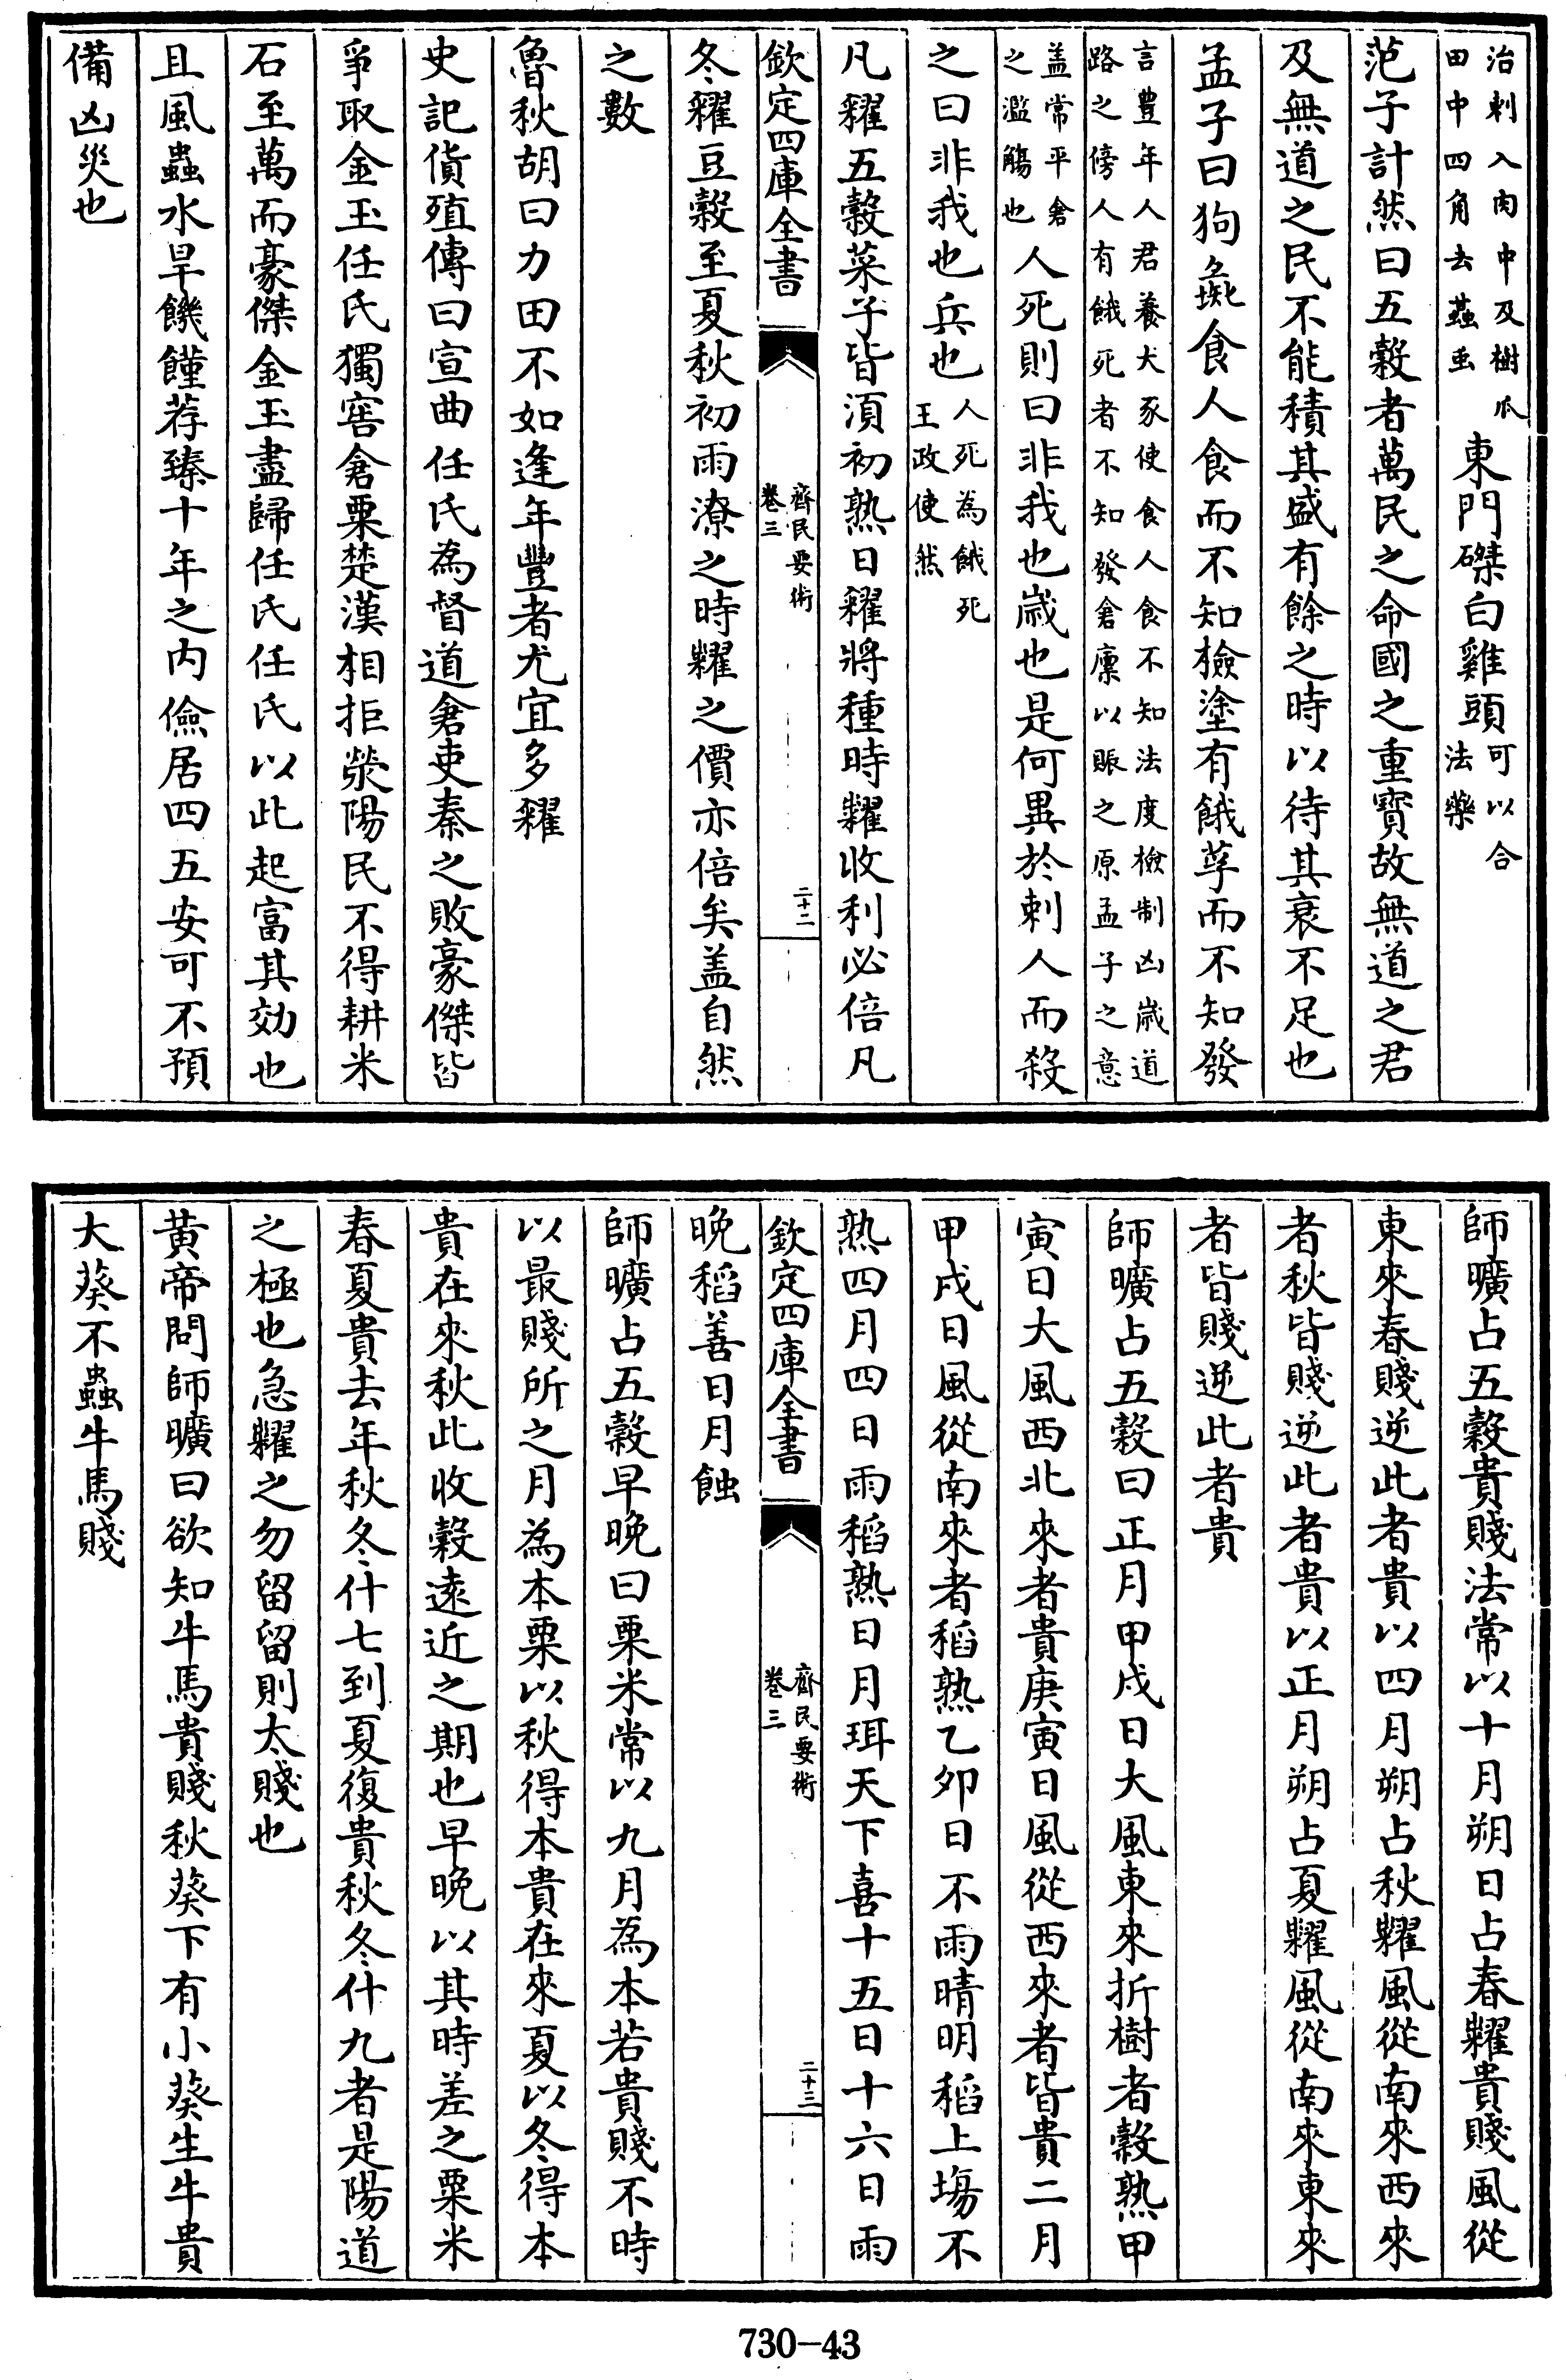 治刺入肉中及樹瓜
田中四角去蟲䖝
東門磔白雞頭
可以合
法藥
范子計然曰五榖者萬民之命國之重寳故無道之君
及無道之民不能積其盛有餘之時以待其衰不足也
孟子曰狗彘食人食而不知檢塗有餓莩而不知發
言豊年人君養犬豕使食人食不知法度檢制凶嵗道
路之傍人有餓死者不知發倉廪以賑之原孟子之意
盖常平倉
之濫觴也
人死則曰非我也嵗也是何異於刺人而殺
之曰非我也兵也
人死為餓死
王政使然
凡糴五榖菜子皆湏初熟日糴將種時糶收利必倍凡
欽定四庫全書
齊民要術
卷三
二十二
冬糴豆榖至夏秋初雨潦之時糶之價亦倍矣盖自然
之數
魯秋胡曰力田不如逢年豐者尤宜多糴
史記貨殖傳曰宣曲任氏為督道倉吏秦之敗豪傑皆
爭取金玉任氏獨窖倉粟楚漢相拒滎陽民不得耕米
石至萬而豪傑金玉盡歸任氏任氏以此起富其効也
且風蟲水旱饑饉荐臻十年之内儉居四五安可不預
備凶災也
師曠占五榖貴賤法常以十月朔日占春糶貴賤風從
東來春賤逆此者貴以四月朔占秋糶風從南來西來
者秋皆賤逆此者貴以正月朔占夏糶風從南來東來
者皆賤逆此者貴
師曠占五榖曰正月甲戍日大風東來折樹者榖熟甲
寅日大風西北來者貴庚寅日風從西來者皆貴二月
甲戍日風從南來者稻熟乙夘日不雨晴明稻上塲不
熟四月四日雨稻熟日月珥天下喜十五日十六日雨
欽定四庫全書
齊民要術
卷三
二十三
晩稻善日月蝕
師曠占五榖早晩曰粟米常以九月為本若貴賤不時
以最賤所之月為本粟以秋得本貴在來夏以冬得本
貴在來秋此收榖逺近之期也早晩以其時差之粟米
春夏貴去年秋冬什七到夏復貴秋冬什九者是陽道
之極也急糶之勿留留則太賤也
黄帝問師曠曰欲知牛馬貴賤秋葵下有小葵生牛貴
大葵不蟲牛馬賤
730-43